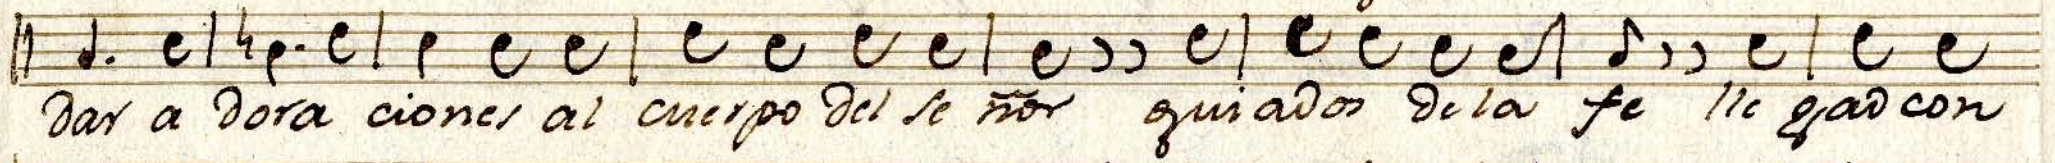 dar a dora ciones al cuerpo del se ñor guiados de la fe lle gad con